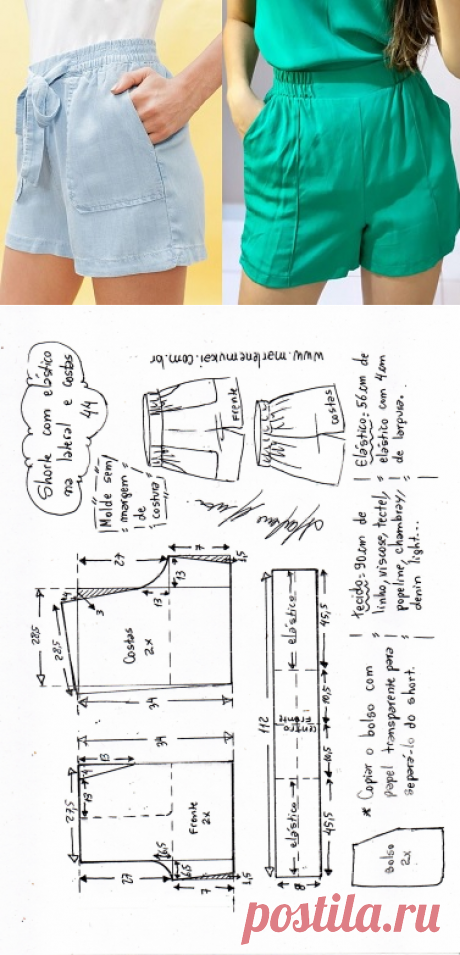 Shorte com elástico
na lateral e costas
44
www.marlenemukai.com.br
Frente
costas
|Molde sem|
margem
de
costura
Elástico: 56cm de
elástico com 4cm
de largura.
tecido: 90cm de
linho, viscose, tectel,
popeline, chambray,
denin light...
27
7
1,5
13
13
4
3
28,5
28,5
Costas
2x
34
elástico
45,5
10,5
centro
Frente
112
10,5
elástico
45,5
8
* Copiar o bolso com
papel transparente para
separá-lo do short.
34
13
4
13
27,5
Frente
2x
6,5
6,5
27
7
1,5
Bolso
2x
postila.ru